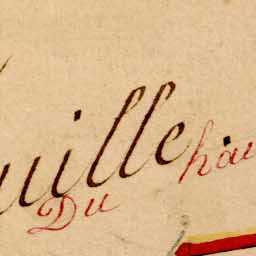 uille.
Du hau